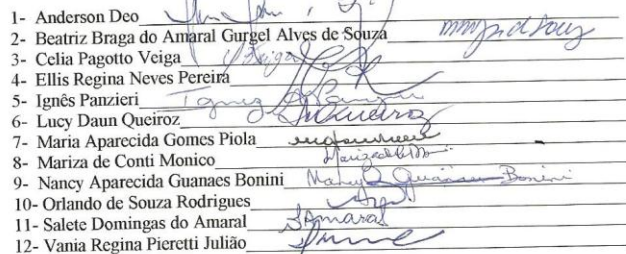 1- Anderson Deo
2- Beatriz Braga do Amaral Gurgel Alves de Souza
3- Celia Pagotto Veiga Veiga
4- Ellis Regina Neves Pereira
5- Ignês Panzieri
6- Lucy Daun Queiroz Queiroz
7- Maria Aparecida Gomes Piola
8- Mariza de Conti Monico
9- Nancy Aparecida Guanaes Bonini Nancy Guanaes Bonini
10- Orlando de Souza Rodrigues
11- Salete Domingas do Amaral SAmaral
12- Vania Regina Pieretti Julião